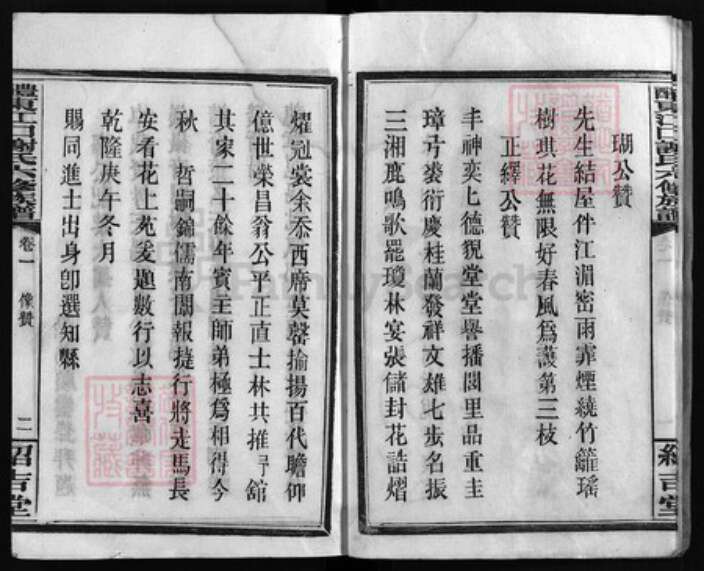 瑚公贊
先生結屋伴江湄密雨霏煙繞竹籬瑤
樹琪花無限好春風爲護第三枝
正繹公贊
丰神奕奕德貌堂堂譽播閭里品重圭
璋弓裘衍慶桂蘭發祥文雄七步名振
三湘鹿鳴歌罷瓊林宴張儲封花誥熠
燿冠裳余忝西席莫罄揄揚百代瞻仰
億世榮昌翁公平正直士林共推予舘
其家二十餘年賓主師弟極爲相得今
秋 哲嗣錦儒南闈報捷行將走馬長
安看花上苑爰題數行以志喜
乾隆庚午冬月
賜同進士出身卽選知縣
醴東江口謝氏六修族譜 卷一 像贊 二 紹言堂
FamilySearch